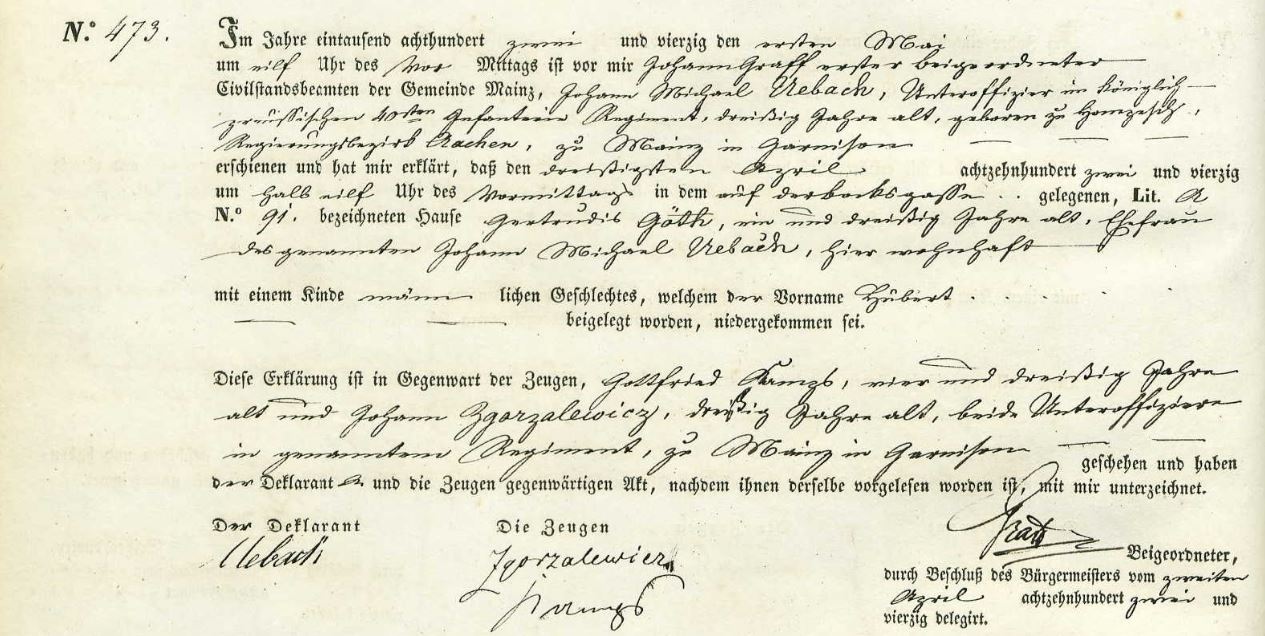 N.º 473.
Im Jahre eintausend achthundert zwei und vierzig den ersten Mai
um eilf Uhr des Vor Mittags ist vor mir Johann Graff erster beigeordneter
Civilstandsbeamten der Gemeinde Mainz, Johann Michael Uebach, Unteroffizier im königlich
preussischen 40sten Infanterie Regiment, dreißig Jahre alt, geboren zu
Regierungsbezirk Aachen, zu Mainz in Garnison
erschienen und hat mir erklärt, daß den dreißigsten April achtzehnhundert zwei und vierzig
um halb eilf Uhr des Vormittags in dem auf der bocksgasse gelegenen, Lit. A
N.º 91. bezeichneten Hause Gertrudis Göth, ein und dreißig Jahre alt, Ehefrau
des genannten Johann Michael Uebach, hier wohnhaft
mit einem Kinde männ lichen Geschlechtes, welchem der Vorname Hubert
beigelegt worden, niedergekommen sei.
Diese Erklärung ist in Gegenwart der Zeugen, Gottfried Kamps, vier und dreißig Jahre
alt und Johann Zgorzalewicz, dreißig Jahre alt, beide Unteroffiziere
in genanntem Regiment, zu Mainz in Garnison
geschehen und haben
der Deklarant und die Zeugen gegenwärtigen Akt, nachdem ihnen derselbe vorgelesen worden ist, mit mir unterzeichnet.
Der Deklarant Die Zeugen
Uebach Zgorzalewicz Graff
Kamps
Beigeordneter,
durch Beschluß des Bürgermeisters vom zweiten
April achtzehnhundert zwei und
vierzig delegirt.